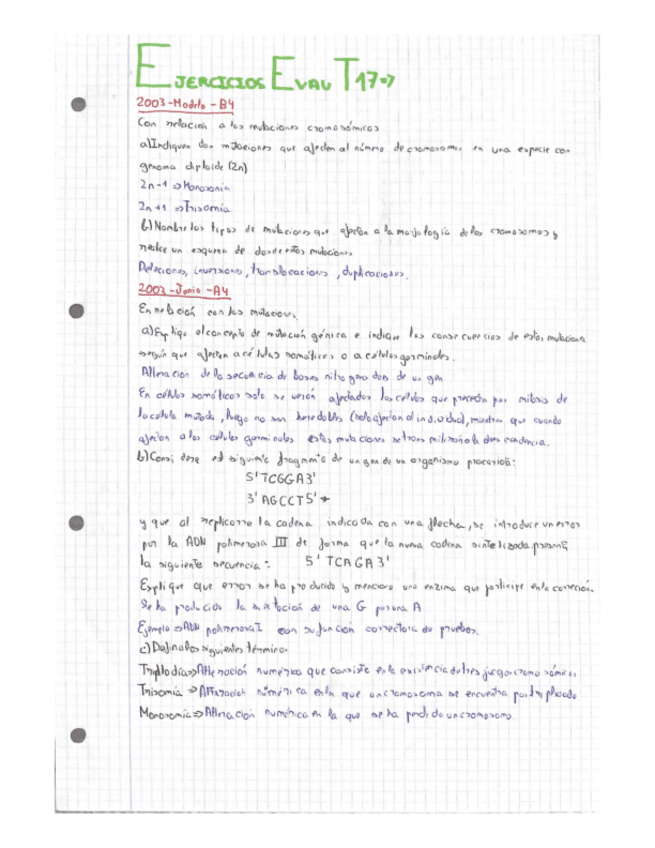 EJERCICIOS EVAU T17=>
2003-Modelo-B4
Con relación a las mutaciones cromosómicas
a) Indiquen dos mutaciones que afecten al número de cromosomas en una especie con
genoma diploide (2n)
2n-1 => Monosomía
2n+1 => Trisomía
b) Nombre los tipos de mutaciones que afectan a la morfología de los cromosomas y
realice un esquema de dos de estas mutaciones
Deleciones, inversiones, translocaciones, duplicaciones.
2003-Junio-A4
En relación con las mutaciones.
a) Explique el concepto de mutación génica e indique las consecuencias de estas mutaciones
según que afecten a células somáticas o a células germinales.
Alteración de la secuencia de bases nitrogenadas de un gen
En células somáticas solo se verán afectadas las células que proceden por mitosis de
la célula mutada, luego no son heredables (solo afectan al individuo), mientras que cuando
afectan a las células germinales estas mutaciones se transmitirán a la descendencia.
b) Considere el siguiente fragmento de un gen de un organismo procariota:
5' TCGGA 3'
3' AGCCT 5' ←
y que al replicarse la cadena indicada con una flecha, se introduce un error
por la ADN polimerasa III de forma que la nueva cadena sintetizada presenta
la siguiente secuencia: 5' TCAGA 3'
Explique que error se ha producido y mencione una enzima que participe en la corrección.
Se ha producido la sustitución de una G por una A
Ejemplo => ADN polimerasa I con su función correctora de pruebas.
c) Defina los siguientes términos
Triploidía => Alteración numérica que consiste en la existencia de tres juegos cromosómicos
Trisomía => Alteración numérica en la que un cromosoma se encuentra por triplicado
Monosomía => Alteración numérica en la que se ha perdido un cromosoma.